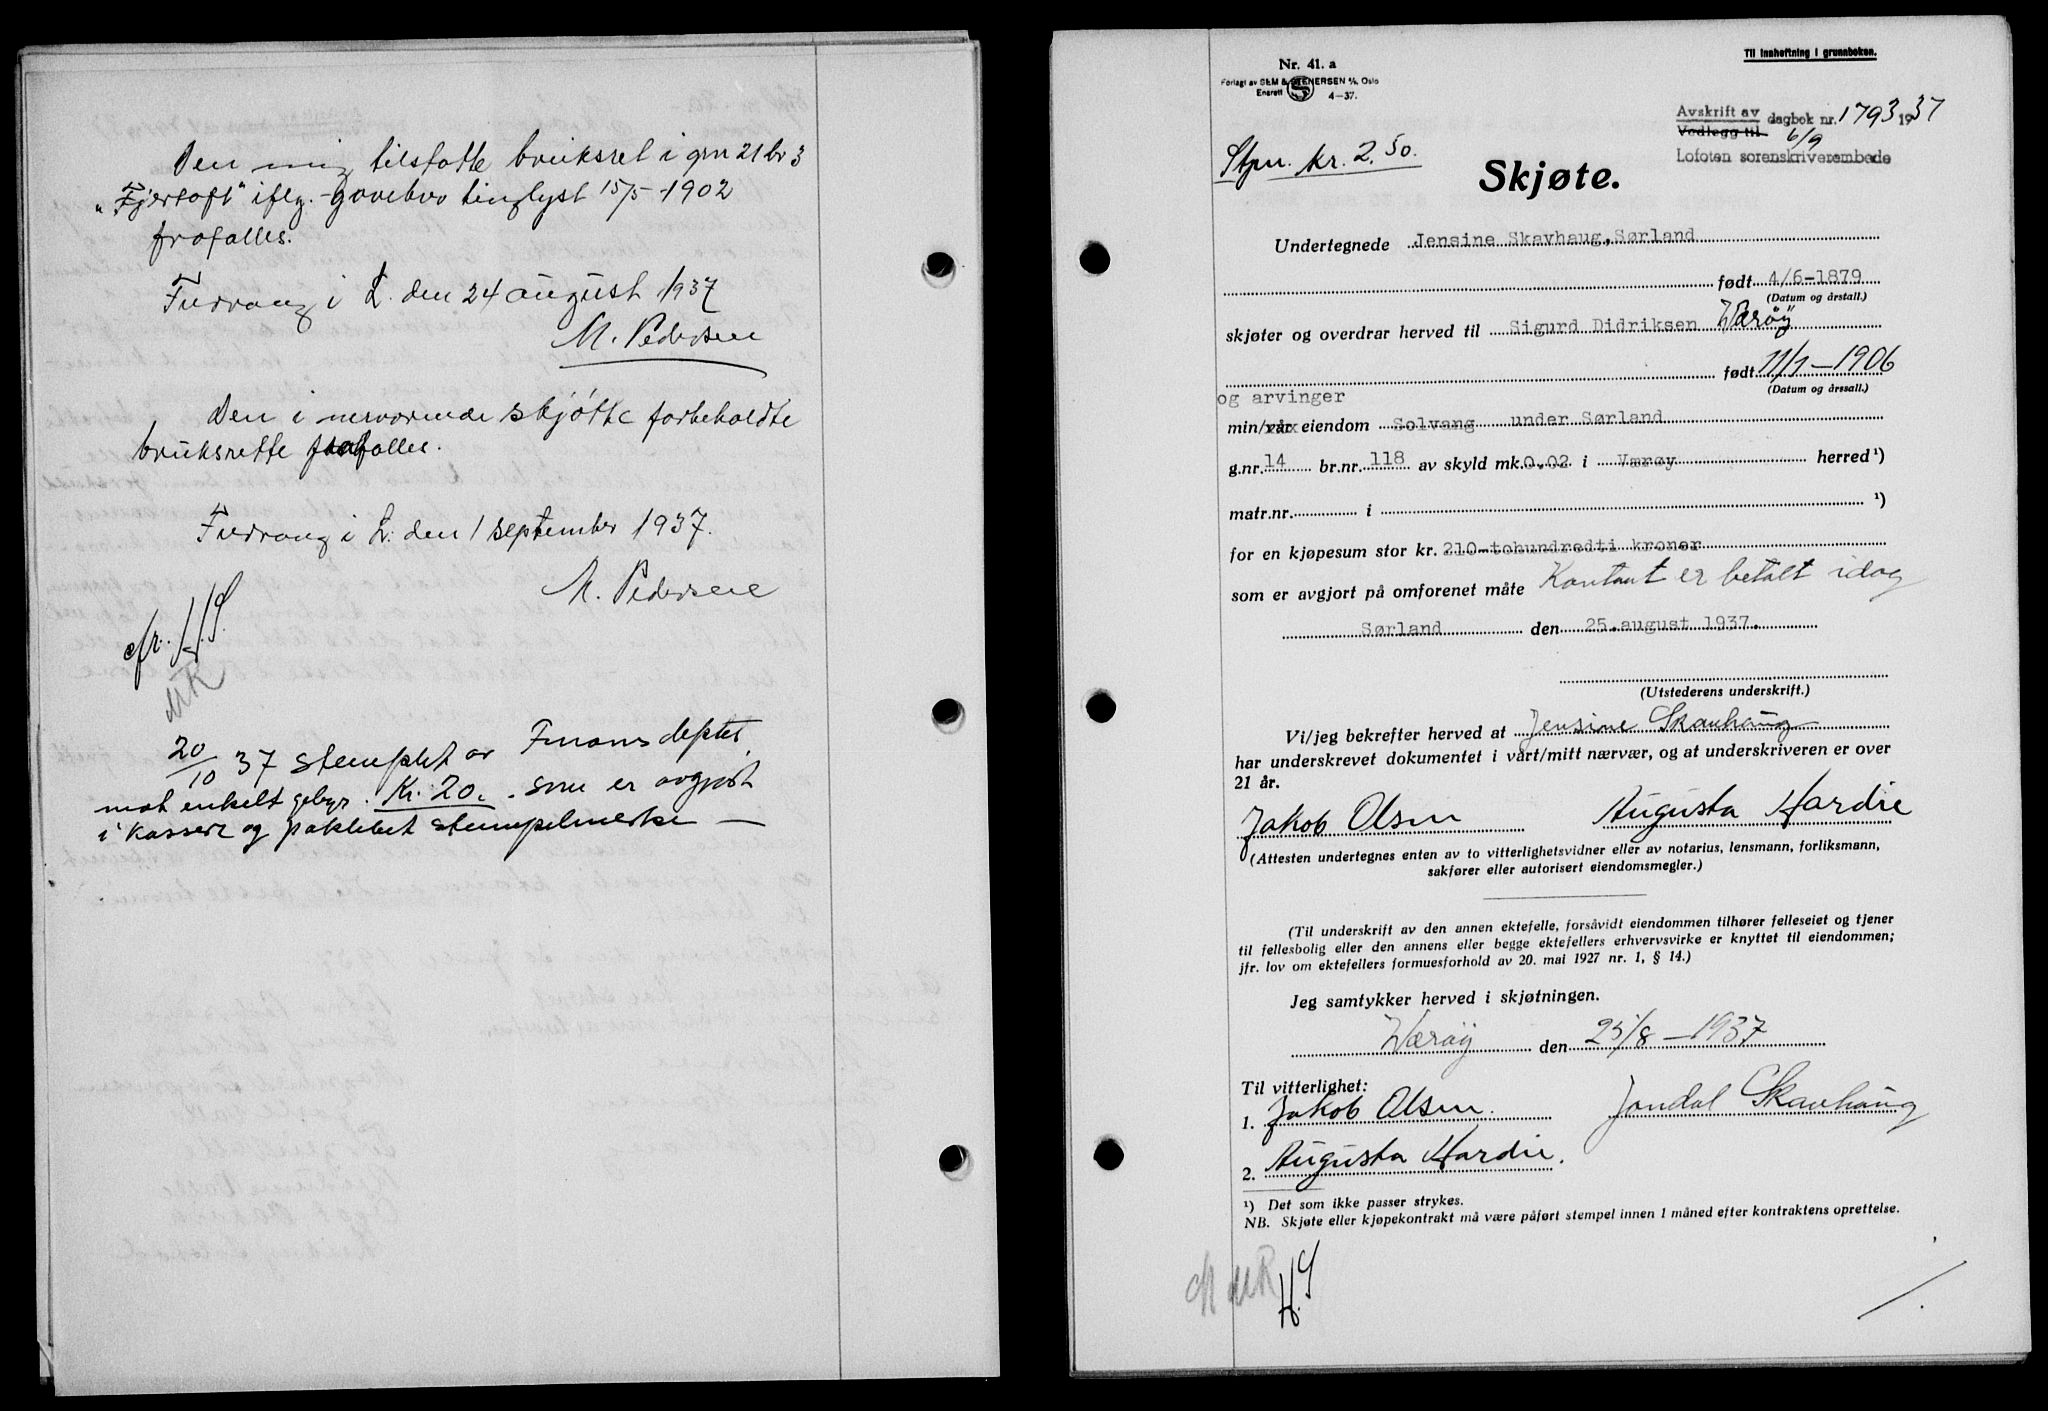 Den mig tilstatte bruksret i grn 21 br 3
"Fjertoft" iflg. gavebrev tinglyst 15/5-1902
frafalles.
Turvang i L. den 24 august 1937
M. Pedersen
Den i nerværende skjøtte forbeholdte
bruksrette frafalles.
Turvang i L. den 1 september 1937.
M. Pedersen
cfr. H.S.
MR
20/10 37 stemplet av Finansdeptet
mot enkelt gebyr. Kr. 20. - som er avgjort
i kassert og påklebet stempelmerke —
Til innheftning i grunnboken.
Nr. 41. a
Forlagt av SEM & STENERSEN A/S, Oslo
Enerett 4-37.
Avskrift av dagbok nr. 1793 1937
Vedlegg til 6/9
Lofoten sorenskriverembede
Stpm. kr. 2.50.
Skjøte.
Undertegnede Jensine Skavhaug, Sørland
født 4/6-1879
(Datum og årstall.)
skjøter og overdrar herved til Sigurd Didriksen Værøy
født 11/1-1906
(Datum og årssall.)
og arvinger
min/vår eiendom Solvang under Sørland
g.nr. 14 br.nr. 118 av skyld mk. 0.02 i Værøy herred ¹)
matr.nr. i ¹)
for en kjøpesum stor kr. 210-tohundredti kroner
som er avgjort på omforenet måte Kontant er betalt idag
Sørland den 25.august 1937.
(Utstederens underskrift.)
Vi/jeg bekrefter herved at Jensine Skavhaug
har underskrevet dokumentet i vårt/mitt nærvær, og at underskriveren er over
21 år.
Jakob Olsen Augusta Hardie
(Attesten undertegnes enten av to vitterlighetsvidner eller av notarius, lensmann, forliksmann,
sakfører eller autorisert eiendomsmegler.)
(Til underskrift av den annen ektefelle, forsåvidt eiendommen tilhører felleseiet og tjener
til fellesbolig eller den annens eller begge ektefellers erhvervsvirke er knyttet til eiendommen;
jfr. lov om ektefellers formuesforhold av 20. mai 1927 nr. 1, § 14.)
Jeg samtykker herved i skjøtningen.
Værøy den 25/8-1937
Til vitterlighet:
1. Jakob Olsen. Jondal Skavhaug
2. Augusta Hardie.
¹) Det som ikke passer strykes.
NB. Skjøte eller kjøpekontrakt må være påført stempel innen 1 måned efter kontraktens oprettelse.
MR
H.S